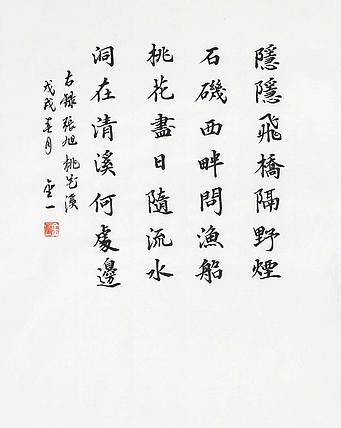 隱隱飛橋隔野煙
石磯西畔問漁船
桃花盡日隨流水
洞在清溪何處邊
右錄張旭桃花溪
戊戌春月